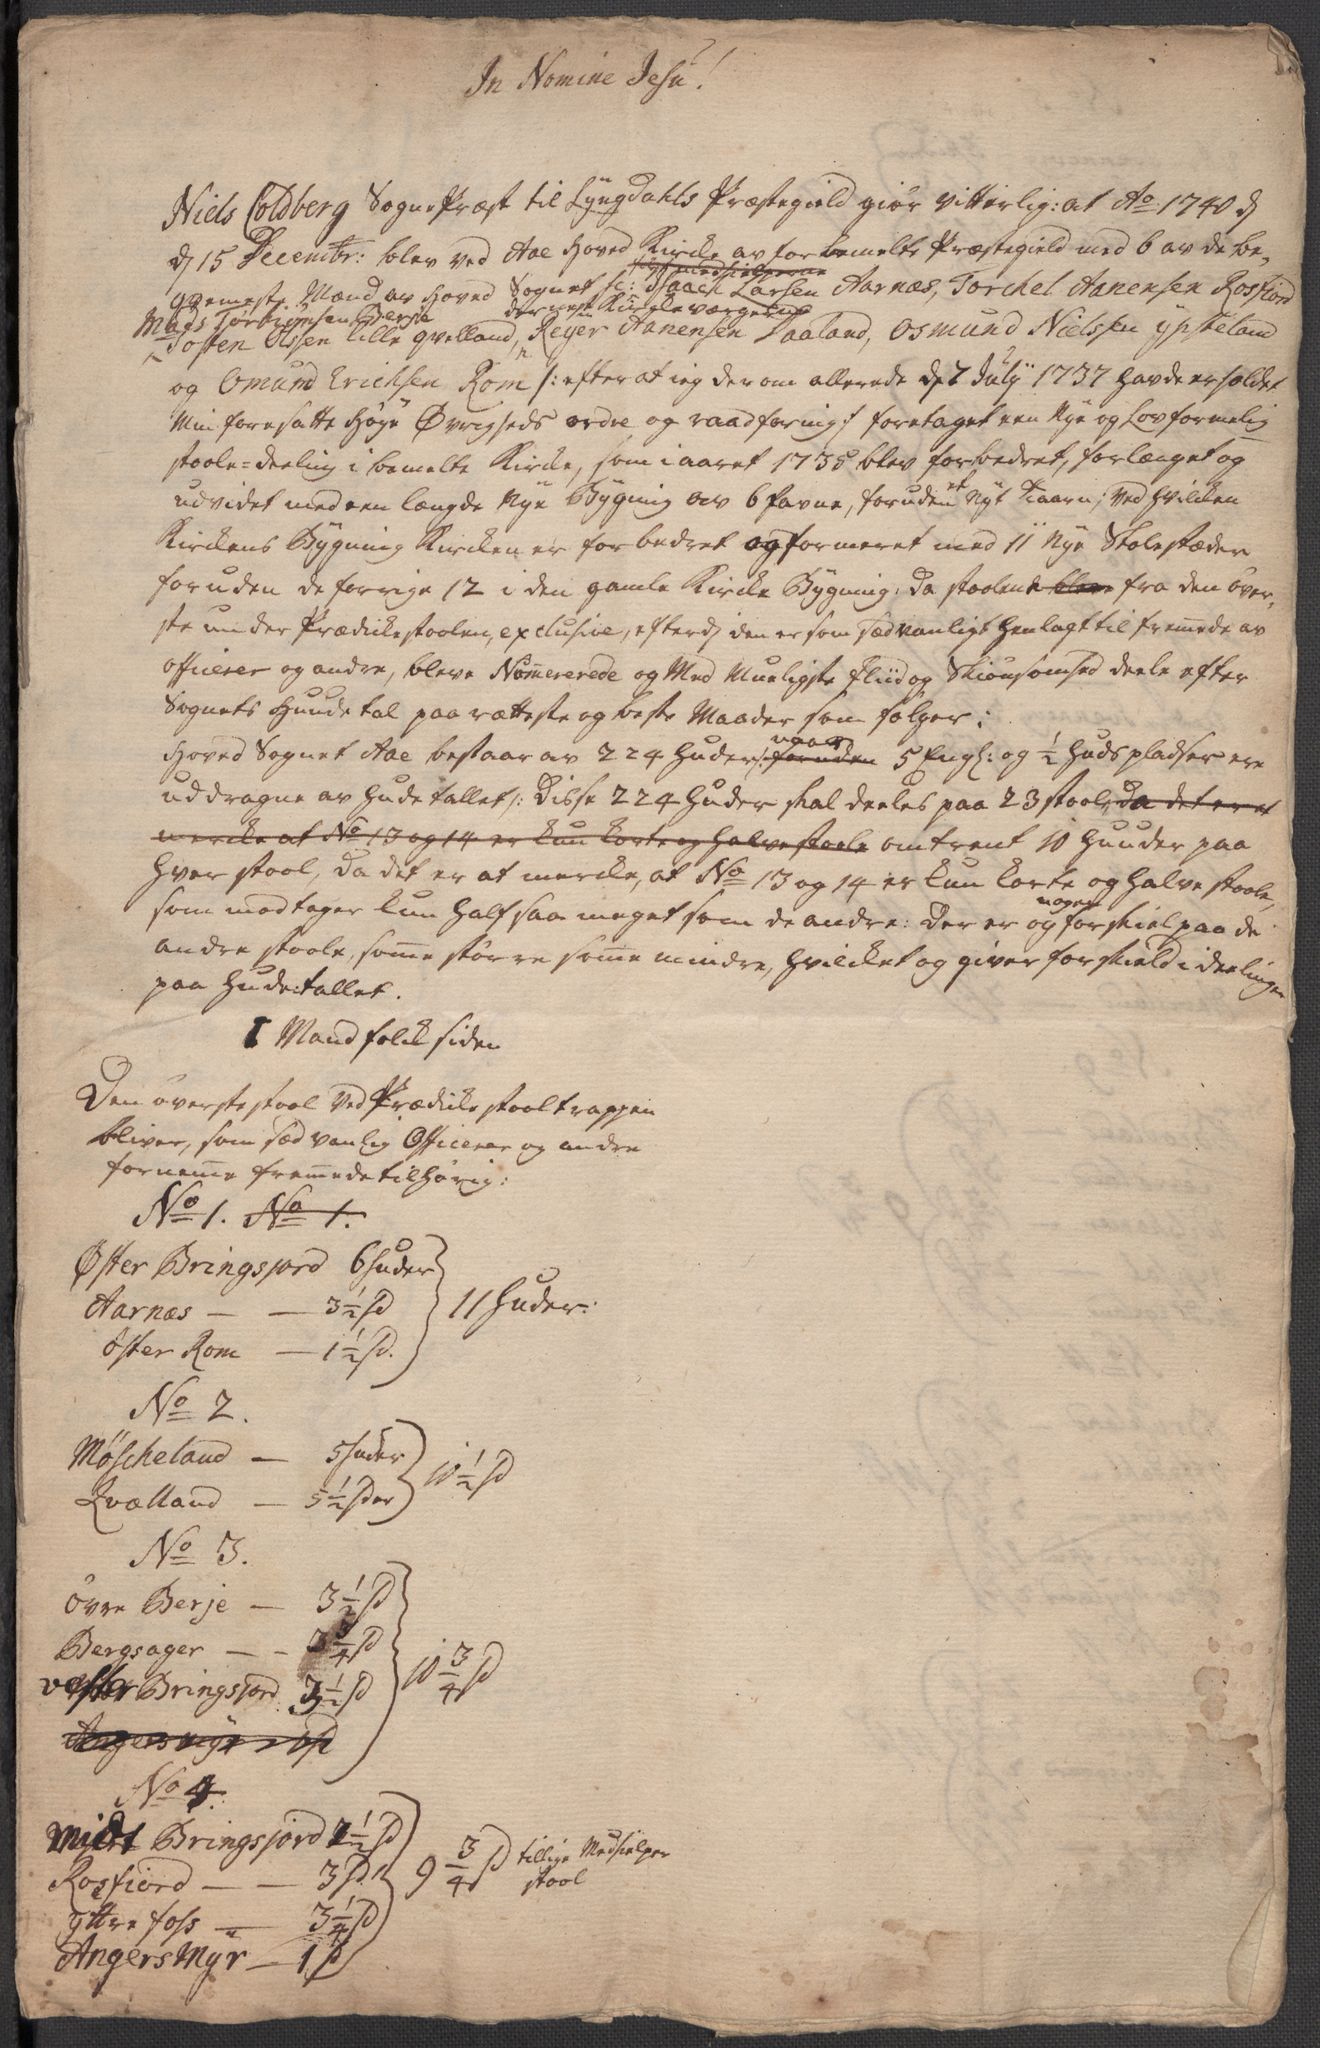 In Nomine Jesu!
Niels Coldberg Sogne Præst til Lyngdahls Præstegield giør vitterlig: at Ao 1740 d
d 15 Decembr: blev ved Aae Hoved Kircke av forbemelte Præstegield med 6 av de be-
qvemeste Mænd av Hoved Sognet sc: Isaach Larsen Aarnæs, Torchel Aanensen Rosfiord
Mads Torbiørnsen Berje
Tosten Olssen Lille qvelland, Reyer Aanensen Faaland, Osmund Nielssen ypsteland
og Omund Erichsen Rom /: efter at ieg der om allerede d 7 July 1737 havde erholdet
Min foresatte Høye Øvrigheds ordre og raadføring :/ foretaget een Nye og Lovformelig
stoole-deeling i bemelte Kircke, som i aaret 1735 blev forbedret, forlænget og
udvidet med een længde Nye Bygning av 6 favne, foruden et Nyt Taarn; ved hvilcken
Kirckens Bygning Kircken er forbedret og formeret med 11 Nye Stolestæder
foruden de forrige 12 i den gamle Kircke Bygning: da stoolene blev fra den øver-
ste under Prædickestoolen, exclusive, efterdj den er som sædvanligt henlagt til fremmede av
officerer og andre, bleve Nommererede og Med Mueligste Fliid og Skiønsomhed deele efter
Sognets Huudetal paa rætteste og beste Maader som følger:
Hoved Sognet Aae bestaar av 224 Huder /: foruden 5 Engl: og ½ Huds pladser ere
uddragne av Hudetallet :/ Disse 224 Huder skal deeles paa 23 stoole, da det er at
mercke at No 13 og 14 er kun korte og halve stoole omtrent 10 Huuder paa
hver stool, da det er at mercke, at No 13 og 14 er kun korte og halve stoole,
som modtager kun half saa meget som de andre: Der er og nogen forskiel paa de
andre stoole, somme større somme mindre, hvilcket og giver forskield i deelingen
paa Hudetallet.
I Mandfolck siden
Den øverste stool ved Prædickestooltrappen
bliver, som sædvanlig Officerer og andre
fornemme fremmede tilhørig:
No 1. No 1.
Øster Bringsjord 6 Huder
Aarnæs — — 3½ Hd
Øster Rom — 1½ Hd.
11 Huder:
No 2.
Møscheland — 5 Huder
Qvælland — 5½ Hder
10½ Hd
No 3.
Øvre Berje — 3½ Hd
Bergsager — — 3¾ Hd
vester Bringsjord 3½ Hd
Angersmyr — 1 Hd
10¾ Hd
No 4.
Midt Bringsjord 2½ Hd
Rosfiord — — 3 Hd
yttre foss — 3¼ Hd
AngersMyr — 1 Hd
9¾ Hd tillige Medhielper
stool